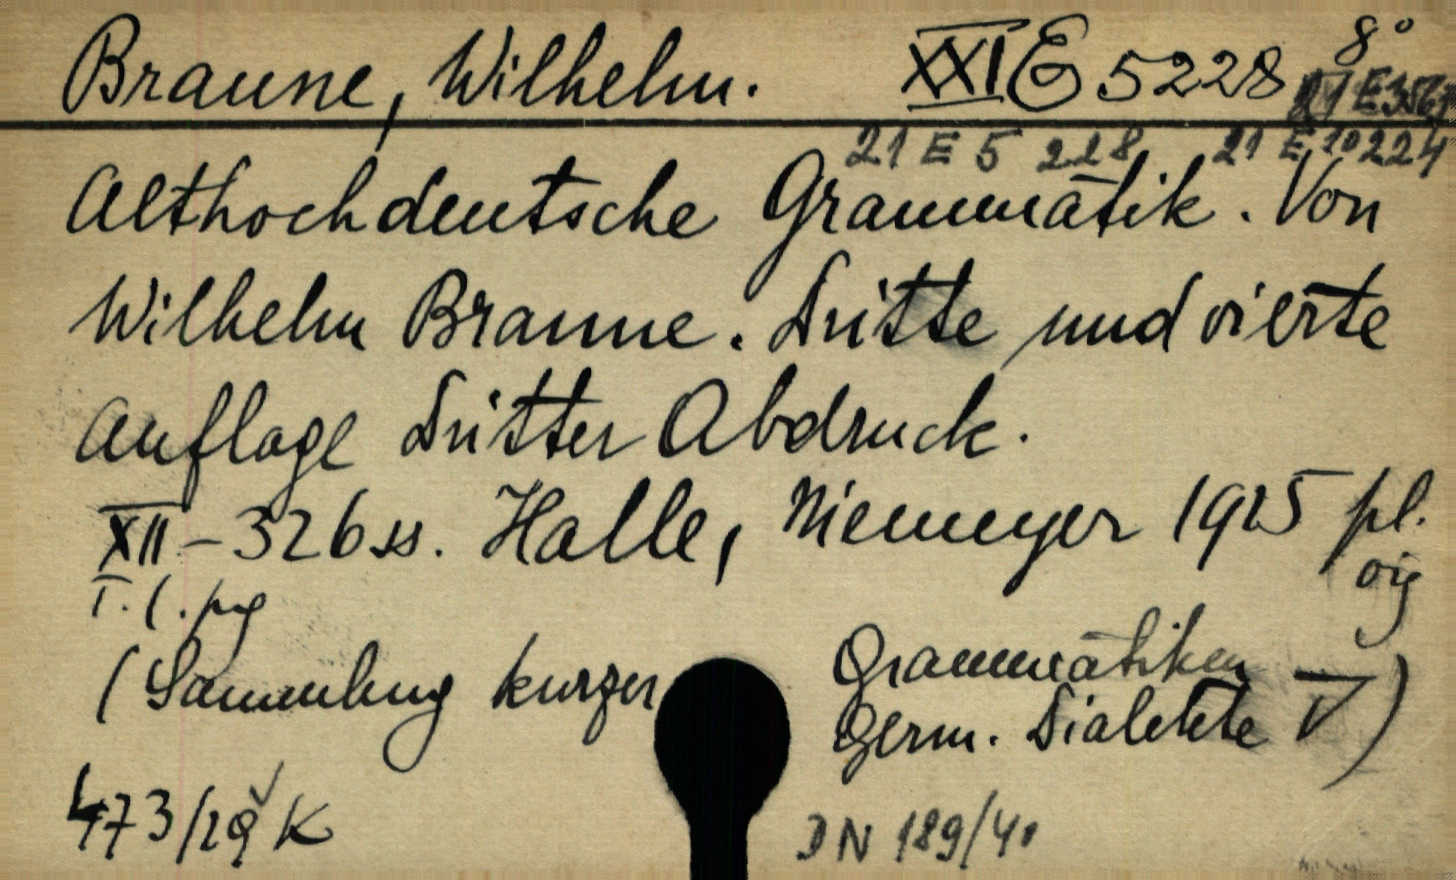 Braune, Wilhelm. XXI E 5228 8°
21 E 5 228 21 E 10224
Althochdeutsche Grammatik. Von
Wilhelm Braune. Dritte und vierte
Auflage Dritter Abdruck.
XII - 326 ss. Halle, Niemeyer 1925 pl.
(Sammlung kurzer Grammatiken
germ. Dialekte V)
473/29 K DN 189/40